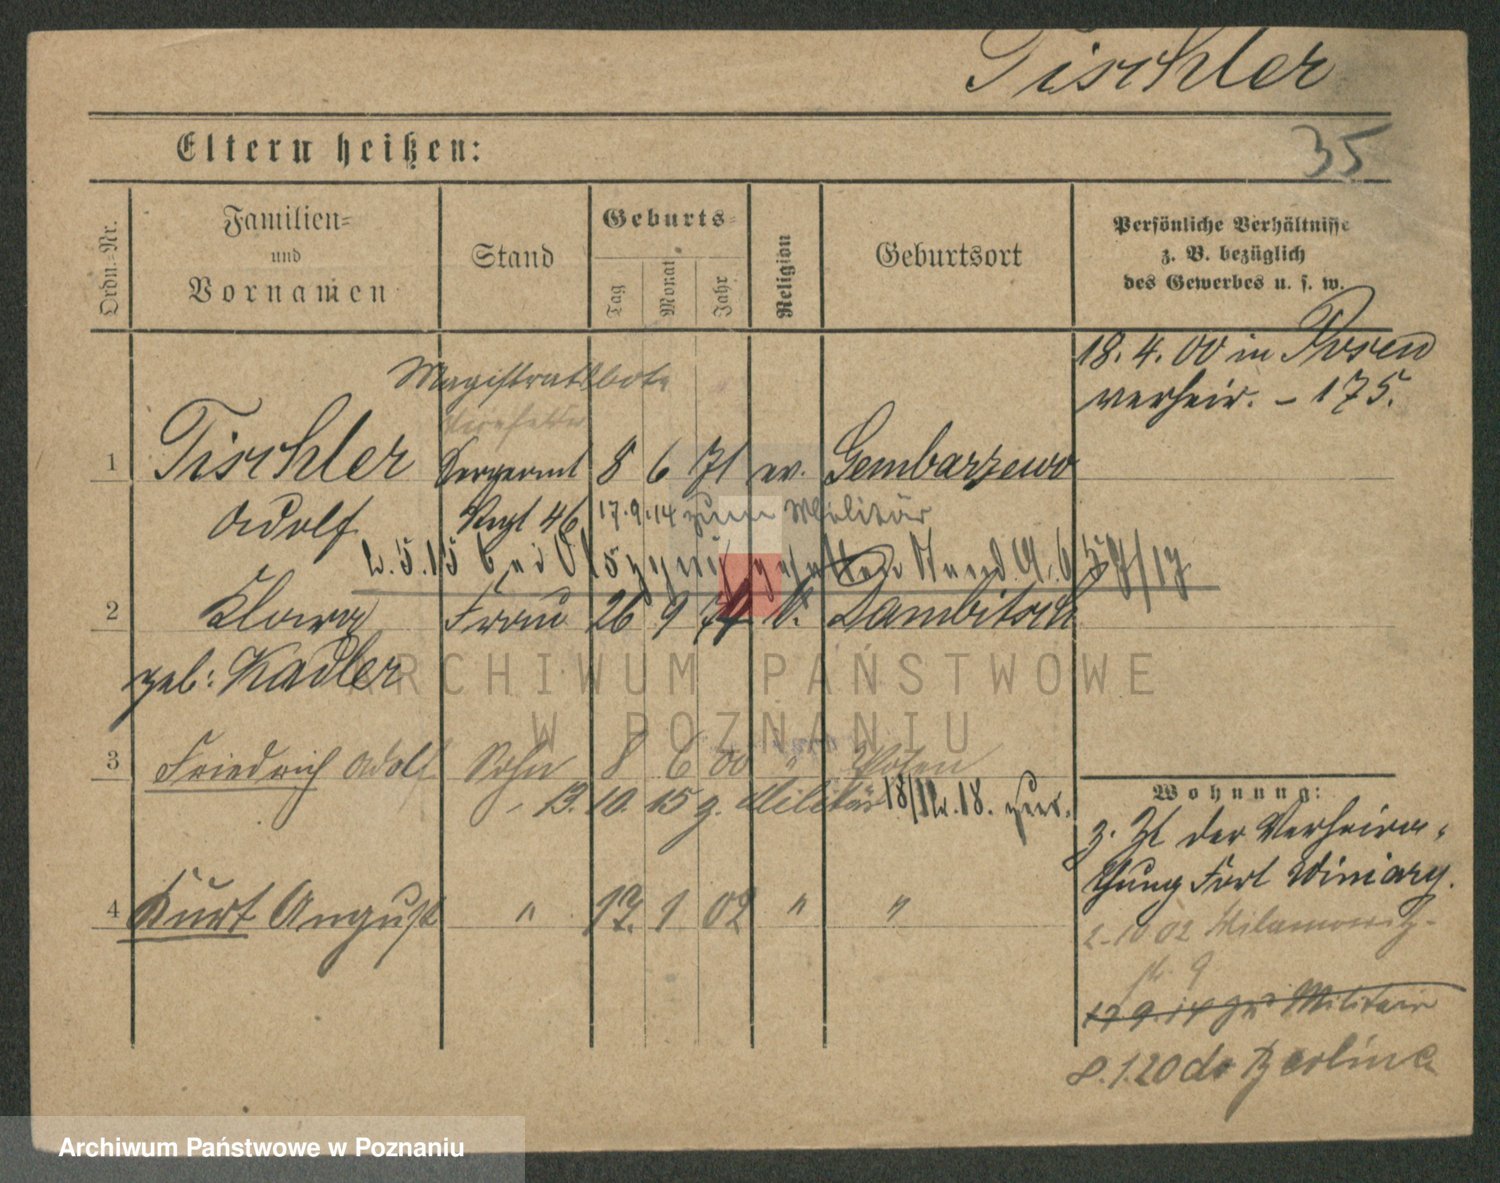 Tischler
35
Eltern heißen:
Ordn.-Nr.
Familien-
und
Vornamen
Stand
Geburts-
Tag
Monat
Jahr
Religion
Geburtsort
Persönliche Verhältnisse
z. B. bezüglich
des Gewerbes u. s. w.
18. 4. 00 in Posen
verheir. - 175.
Magistratsbote
1 Tischler Sergeant 8 6 71 ev. Gembarzewo
Adolf Rgt 46 17.9.14 zum Militär
2.5.15 bei gefallen Stand. A. 657/17
2 Klara Frau 26 9 74 k. Dambitsch
geb: Kadler
3 Friedrich Adolf Sohn 8 6 00 " Posen
- 13. 10. 15 z. Militär 18/12.18. zur.
4 Kurt August " 17. 1 02 " "
Wohnung:
z. Zt der Verheira-
thung Fort Winiary.
2-10 02
str. 9
17 9. 14 zu Militär
8.1.20 do Berlina
ARCHIWUM PAŃSTWOWE
W POZNANIU
Archiwum Państwowe w Poznaniu